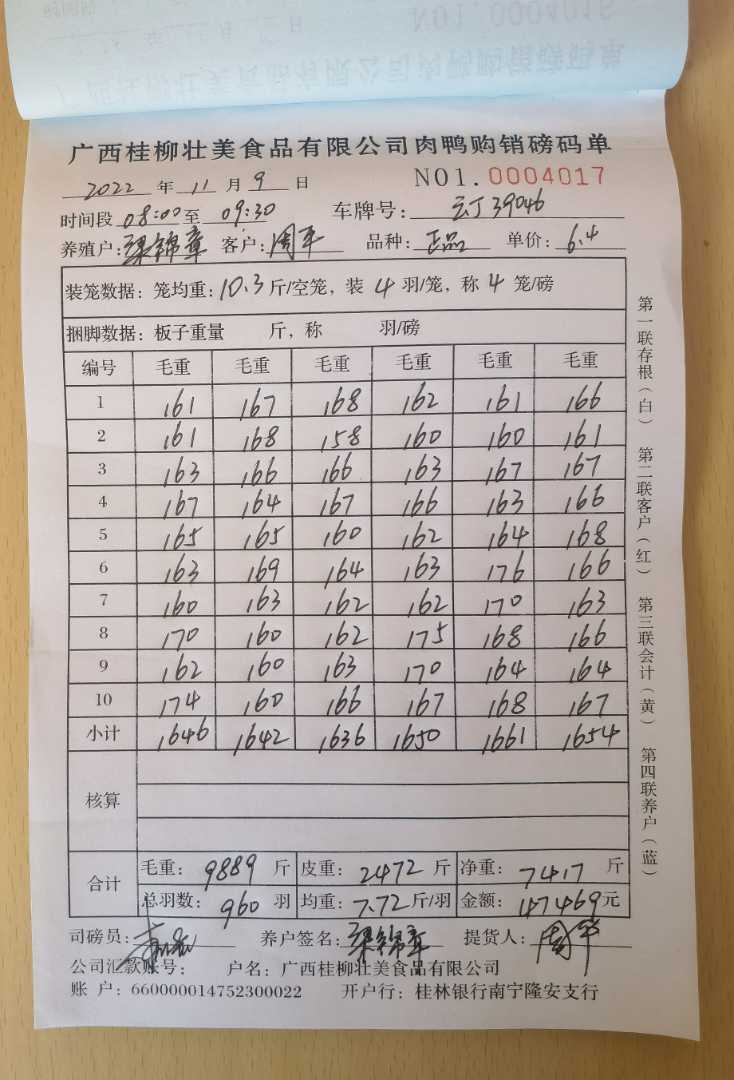 广西桂柳壮美食品有限公司肉鸭购销磅码单
2022 年 11 月 9 日 NO1.0004017
时间段 08:00 至 09:30 车牌号: 云J39046
养殖户: 梁锦章 客户: 周平 品种: 正品 单价: 6.4
装笼数据: 笼均重: 10.3 斤/空笼, 装 4 羽/笼, 称 4 笼/磅
捆脚数据: 板子重量 斤, 称 羽/磅
编号 毛重 毛重 毛重 毛重 毛重 毛重
1 161 167 168 162 161 166
2 161 168 158 160 160 161
3 163 166 166 163 167 167
4 167 164 167 166 163 166
5 165 165 160 162 164 168
6 163 169 164 163 176 166
7 160 163 162 162 170 163
8 170 160 162 175 168 166
9 162 160 163 170 164 164
10 174 160 166 167 168 167
小计 1646 1642 1636 1650 1661 1654
核算
合计 毛重: 9889 斤 皮重: 2472 斤 净重: 7417 斤
总羽数: 960 羽 均重: 7.72 斤/羽 金额: 47469 元
司磅员: 养户签名: 梁锦章 提货人: 周华
公司汇款账号: 户名: 广西桂柳壮美食品有限公司
账 户: 660000014752300022 开户行: 桂林银行南宁隆安支行
第一联存根(白) 第二联客户(红) 第三联会计(黄) 第四联养户(蓝)